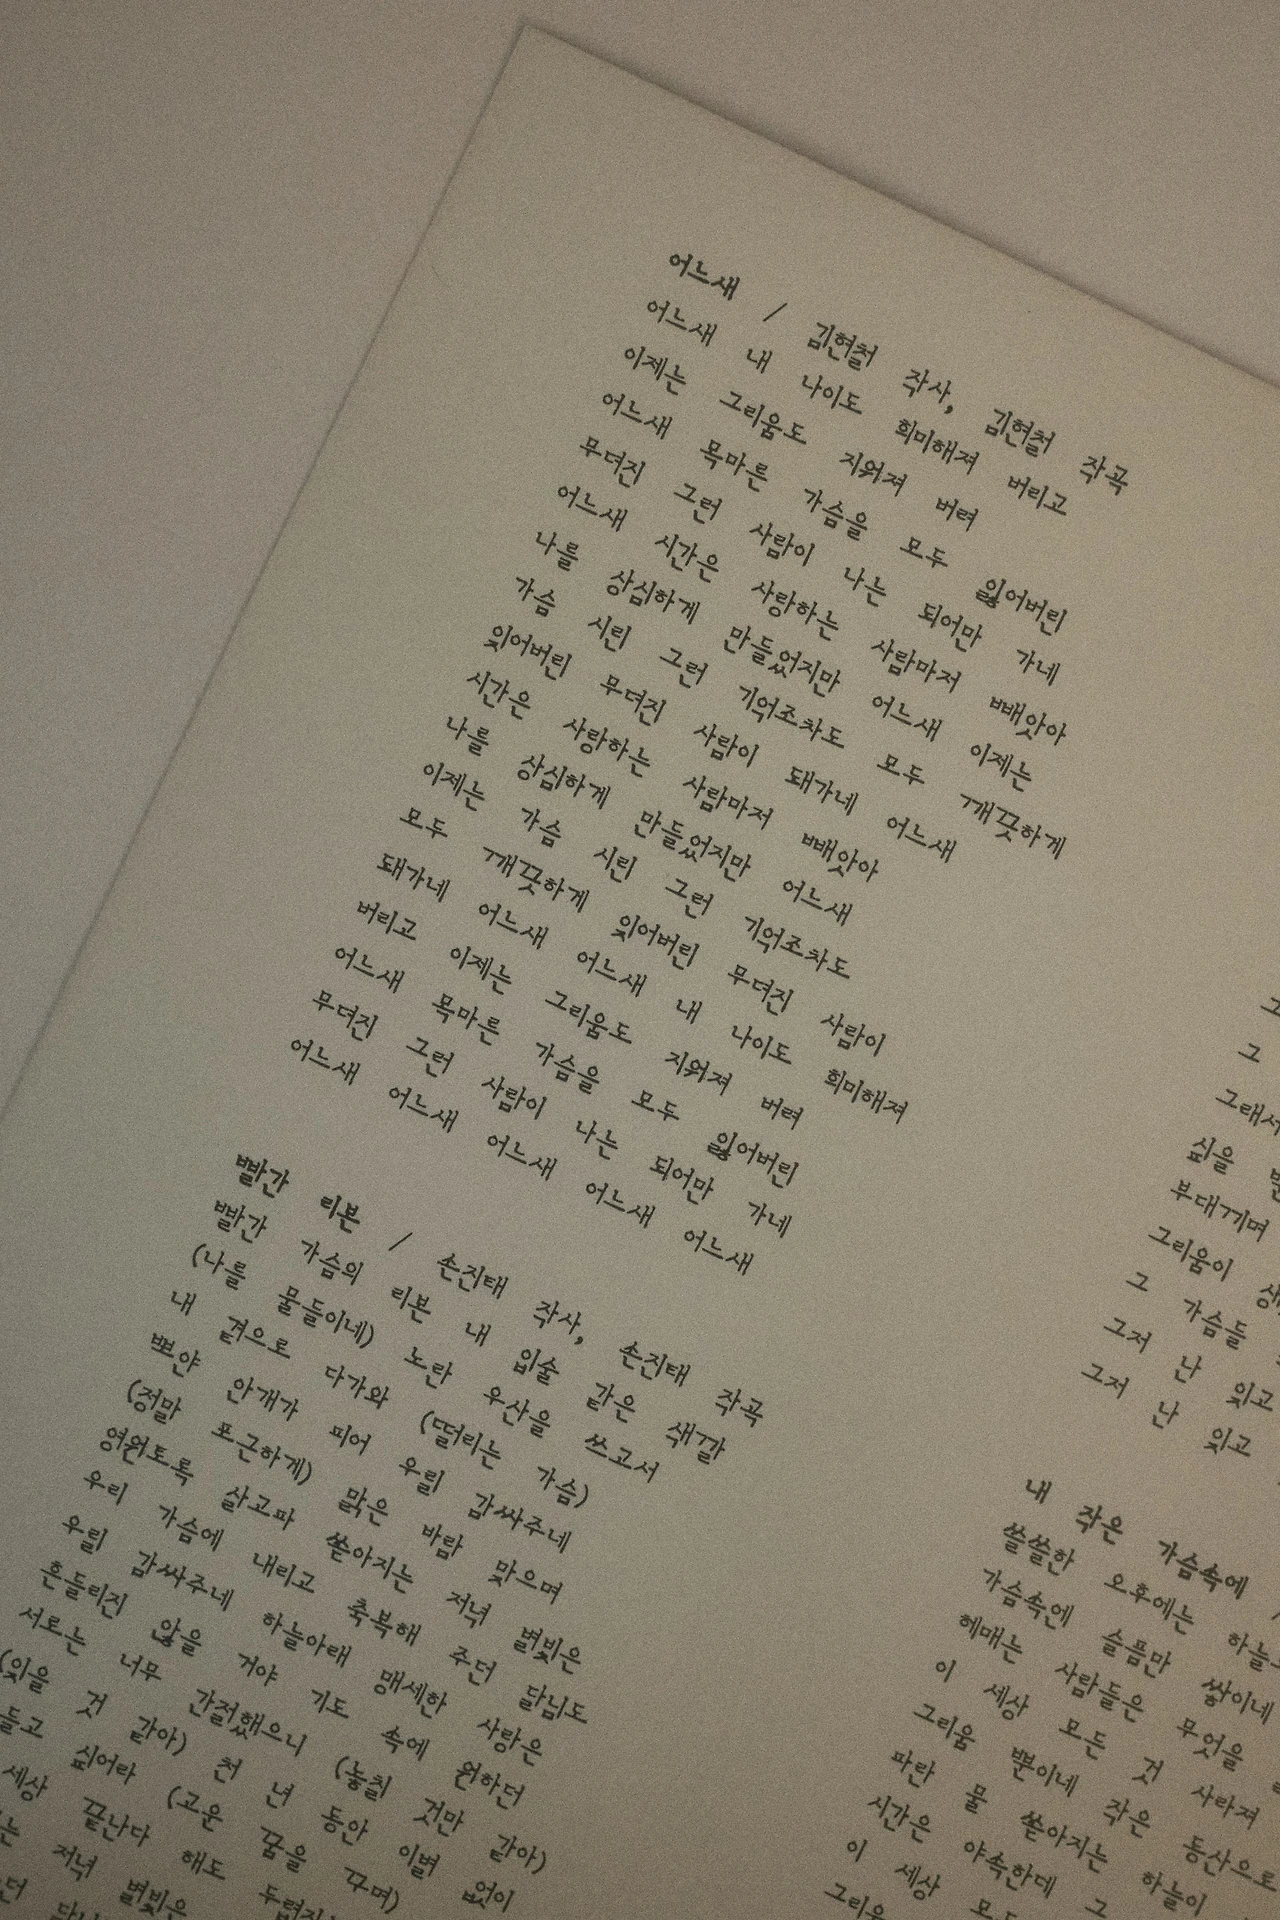 어느새 / 김현철 작사, 김현철 작곡
어느새 내 나이도 희미해져 버리고
이제는 그리움도 지워져 버려
어느새 목마른 가슴을 모두 잃어버린
무뎌진 그런 사람이 나는 되어만 가네
어느새 시간은 사랑하는 사람마저 빼앗아
나를 상심하게 만들었지만 어느새 이제는
가슴 시린 그런 기억조차도 모두 깨끗하게
잊어버린 무뎌진 사람이 돼가네 어느새
시간은 사랑하는 사람마저 빼앗아
나를 상심하게 만들었지만 어느새
이제는 가슴 시린 그런 기억조차도
모두 깨끗하게 잊어버린 무뎌진 사람이
돼가네 어느새 어느새 내 나이도 희미해져
버리고 이제는 그리움도 지워져 버려
어느새 목마른 가슴을 모두 잃어버린
무뎌진 그런 사람이 나는 되어만 가네
어느새 어느새 어느새 어느새 어느새
빨간 리본 / 손진태 작사, 손진태 작곡
빨간 가슴의 리본 내 입술 같은 색깔
(나를 물들이네) 노란 우산을 쓰고서
내 곁으로 다가와 (떨리는 가슴)
뽀얀 안개가 피어 우릴 감싸주네
(정말 포근하게) 맑은 바람 맞으며
영원토록 살고파 쏟아지는 저녁 별빛은
우리 가슴에 내리고 축복해 주던 달님도
우릴 감싸주네 하늘아래 맹세한 사랑은
흔들리진 않을 거야 기도 속에 원하던
서로는 너무 간절했으니 (놓칠 것만 같아)
(있을 것 같아) 천 년 동안 이별 없이
들고 싶어라 (고운 꿈을 꾸며)
세상 끝난다 해도
는 저녁 별빛은
던
그
그래서
싶을
부대끼며
그리움이
그 가슴들
그저 난 잊고
그저 난 잊고
내 작은 가슴속에 /
쓸쓸한 오후에는
가슴속엔 슬픔만 쌓이네
헤매는 사람들은 무엇을
이 세상 모든 것 사라져
그리움 뿐이네 작은 동산으로
파란 물 쏟아지는 하늘이
시간은 야속한데 그
이 세상